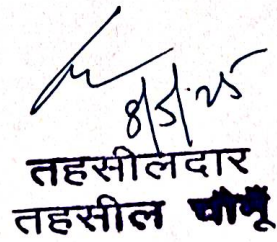 8/5/25
तहसीलदार
तहसील चौमूँ